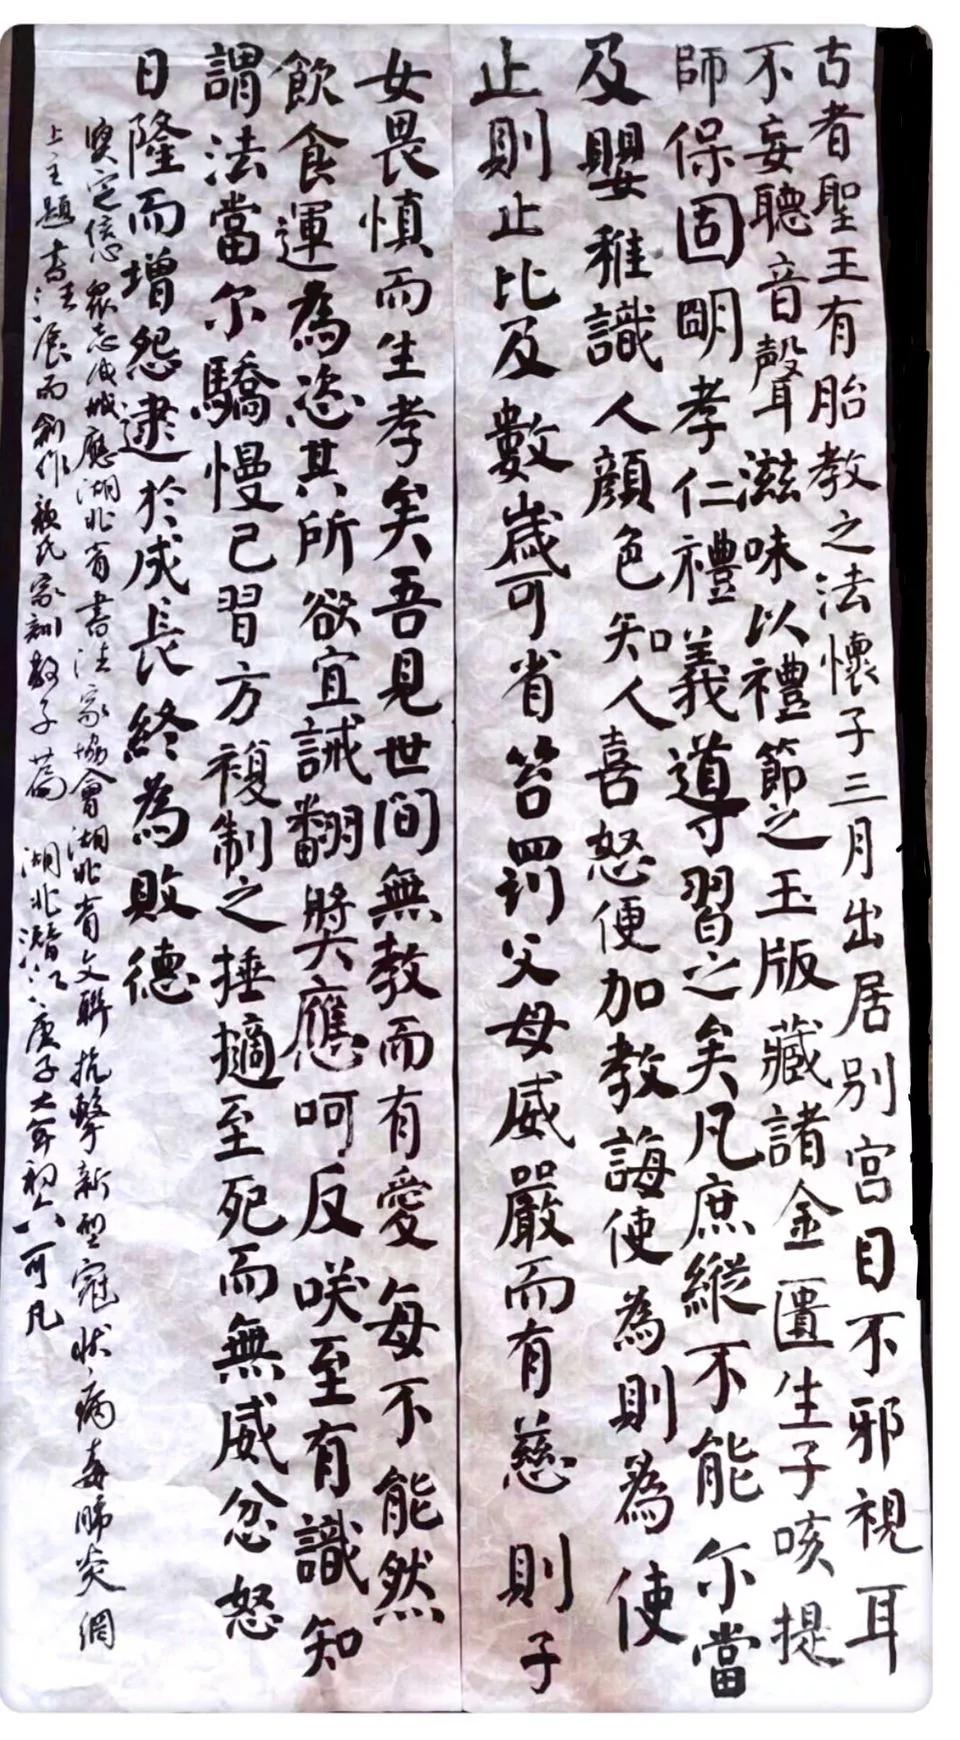 古者聖王有胎教之法懷子三月出居别宮目不邪視耳
不妄聽音聲滋味以禮節之玉版藏諸金匱生子咳提
師保固明孝仁禮義導習之矣凡庶縱不能尓當
及嬰稚識人顔色知人喜怒便加教誨使為則為使
止則止比及數歲可省笞罰父母威嚴而有慈則子
女畏慎而生孝矣吾見世間無教而有愛每不能然
飲食運為恣其所欲宜誡翻奬應呵反咲至有識知
謂法當尓驕慢已習方複制之捶撻至死而無威忿怒
日隆而增怨逮於成長終為敗德
堅定信心衆志成城應湖北省書法家協會湖北省文聯抗擊新型冠狀病毒肺炎網
上主題書法展而創作顔氏家訓教子篇 湖北潛江庚子大年初六可凡